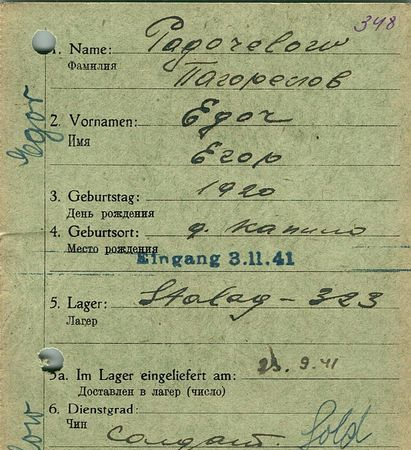 348
1. Name: Радочевоги
Фамилия
Пагореслов
2. Vornamen: Едоч
Имя
Егор
Egor
3. Geburtstag: 1920
День рождения
4. Geburtsort: д. Капино
Место рождения
Eingang 3.11.41
5. Lager: Stalag-323
Лагерь
5a. Im Lager eingeliefert am: 23.9.41
Доставлен в лагерь (число)
6. Dienstgrad:
Чин
Солдат. Sold